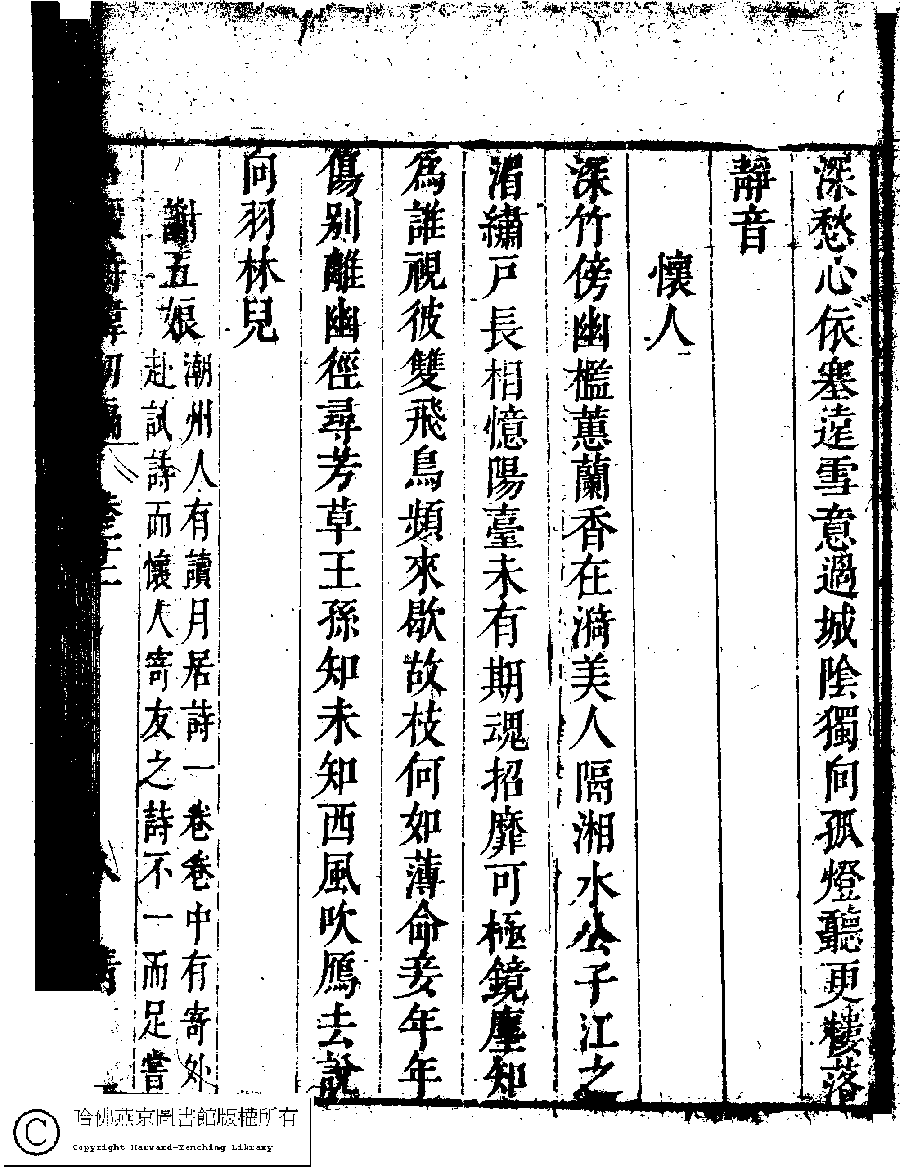 深愁心依塞遠雪意過城陰獨向孤燈聽更樓落
靜音
懷人
深竹傍幽檻蕙蘭香在漪美人隔湘水公子江之
湄繡戸長相憶陽臺未有期魂招靡可極鏡塵知
為誰視彼雙飛鳥頻來歇故枝何如薄命妾年年
傷别離幽徑尋芳草王孫知未知西風吹鴈去說
向羽林兒
謝五娘
潮州人有讀月居詩一卷卷中有寄外
赴試詩而懷人寄友之詩不一而足嘗
哈佛燕京圖書館版權所有
Copyright Harvard-Yenching Library